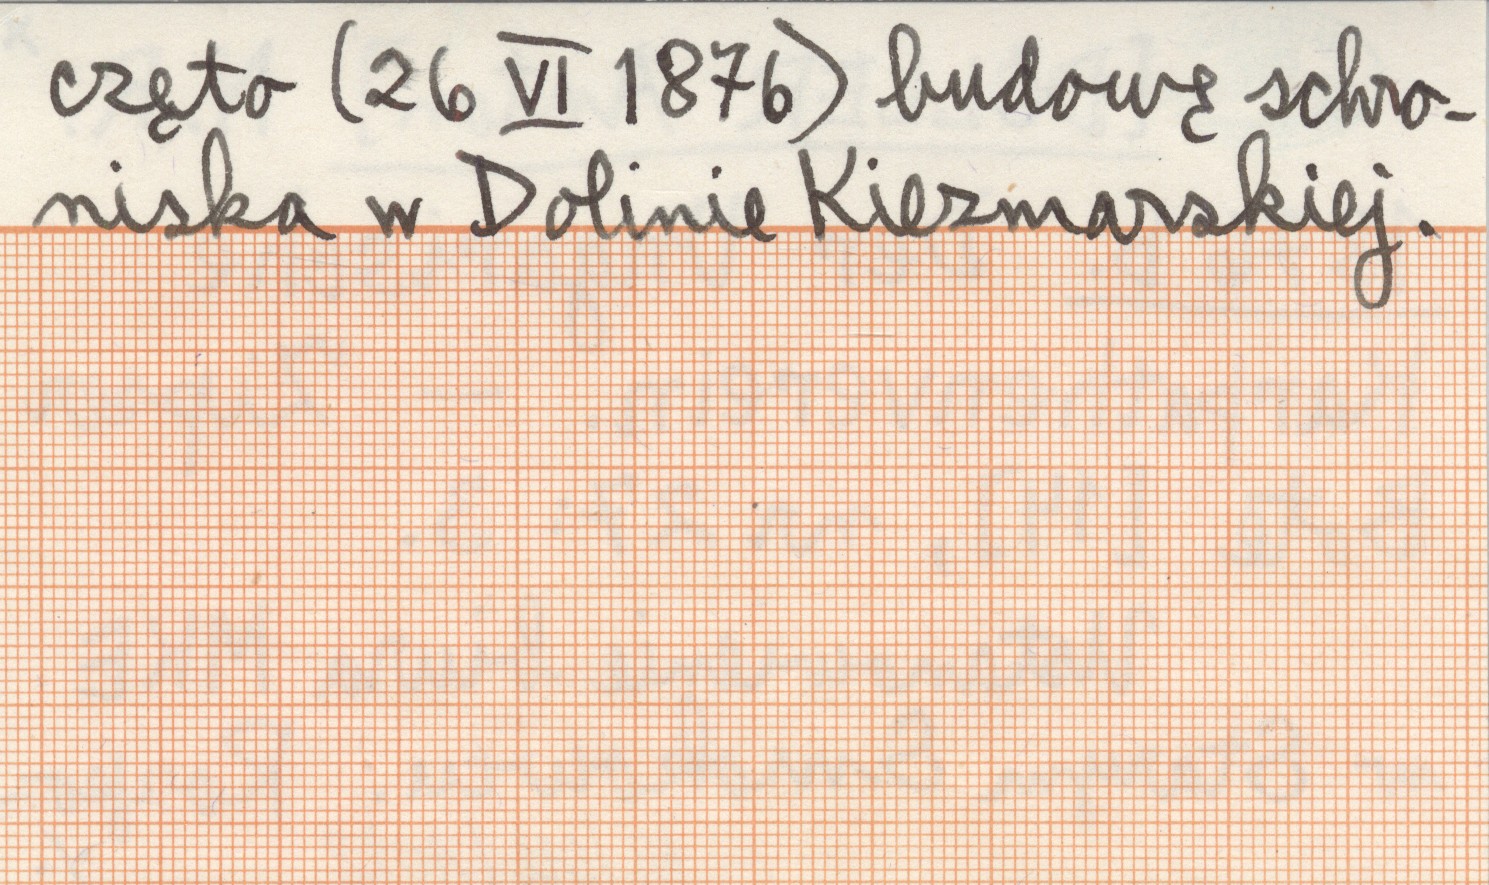 częto (26 VI 1876) budowę schro-
niska w Dolinie Kiezmarskiej.